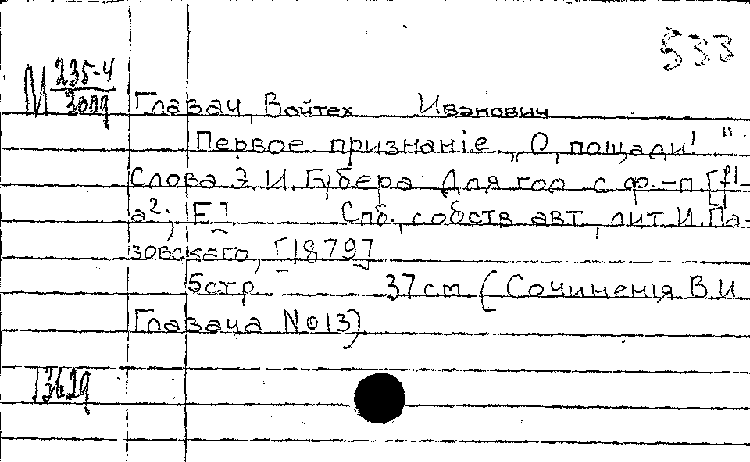 533
М 235-4
Глазач, Войтех Иванович
Первое признанiе „О, пощади!"
Слова Э. И. Губера Для гол с ф.-п. [f1-
a2; E]  Спб., собств авт, лит. И. Па-
зовскаго, [1879]
5стр  37см (Сочиненiя В.И
Глазача №13)